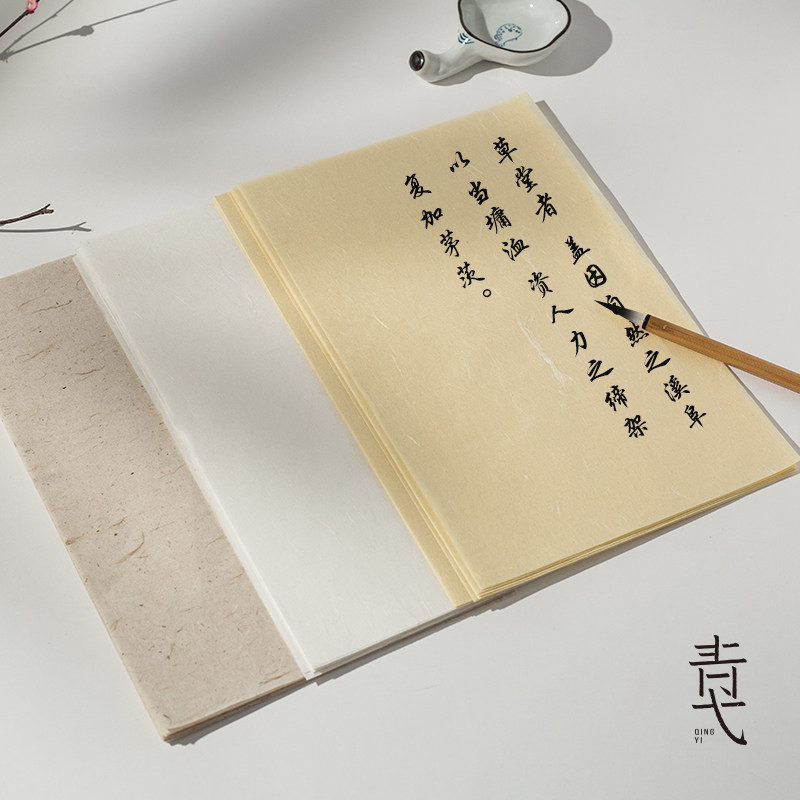 草堂者 盖因自然之溪阜
以当墉洫 资人力之缔架
复加茅茨。
青弋
QING
YI